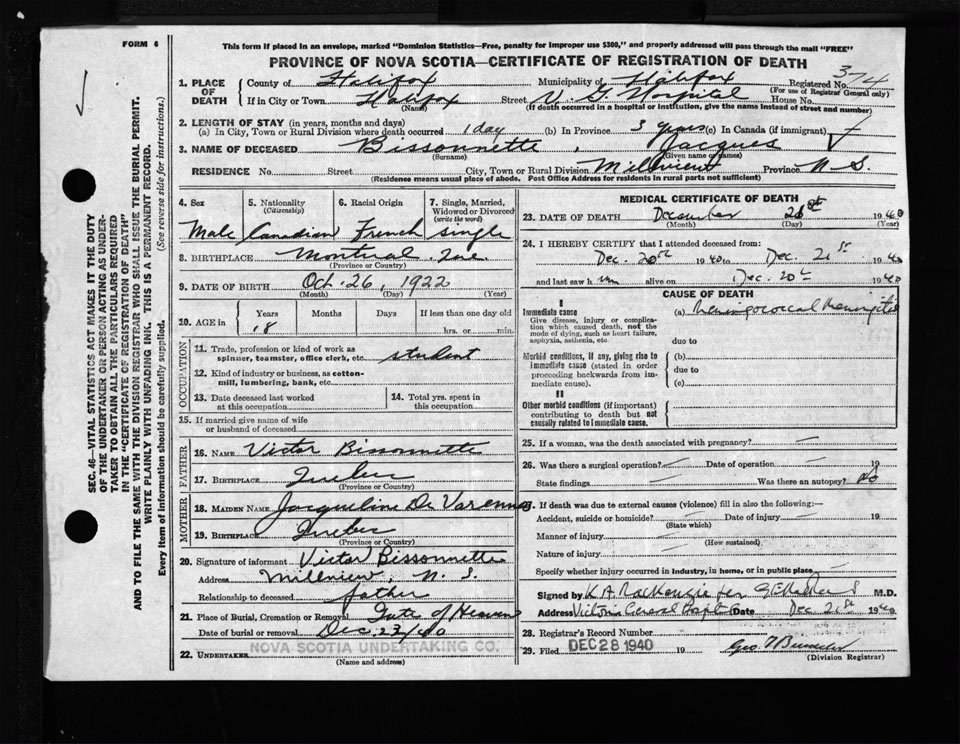 FORM 6
This form if placed in an envelope, marked "Dominion Statistics—Free, penalty for improper use $300," and properly addressed will pass through the mail "FREE"
PROVINCE OF NOVA SCOTIA—CERTIFICATE OF REGISTRATION OF DEATH
1. PLACE OF DEATH County of Halifax Municipality of Halifax Registered No. 374
(For use of Registrar General only)
If in City or Town Halifax Street V. G. Hospital House No.
(Name) (If death occurred in a hospital or institution, give the name instead of street and number)
2. LENGTH OF STAY (in years, months and days)
(a) In City, Town or Rural Division where death occurred 1 day (b) In Province 3 years (c) In Canada (if immigrant)
3. NAME OF DECEASED Bissonnette, Jacques
(Surname) (Given name or names)
RESIDENCE No. Street City, Town or Rural Division Millview Province N. S.
(Residence means usual place of abode. Post Office Address for residents in rural parts not sufficient)
4. Sex 5. Nationality (Citizenship) 6. Racial Origin 7. Single, Married, Widowed or Divorced (write the word)
Male Canadian French single
8. BIRTHPLACE Montreal. Que.
(Province or Country)
9. DATE OF BIRTH Oct. 26, 1922
(Month) (Day) (Year)
10. AGE in Years Months Days If less than one day
18 hrs. or min.
OCCUPATION
11. Trade, profession or kind of work as spinner, teamster, office clerk, etc. student
12. Kind of industry or business, as cotton-mill, lumbering, bank, etc.
13. Date deceased last worked at this occupation
14. Total yrs. spent in this occupation
15. If married give name of wife or husband of deceased
FATHER
16. NAME Victor Bissonnette
17. BIRTHPLACE Quebec
(Province or Country)
MOTHER
18. MAIDEN NAME Jacqueline De Varennes
19. BIRTHPLACE Quebec
(Province or Country)
20. Signature of informant Victor Bissonnette
Address Millview, N. S.
Relationship to deceased father
21. Place of Burial, Cremation or Removal Gate of Heaven
Date of burial or removal Dec. 23/40
22. UNDERTAKER NOVA SCOTIA UNDERTAKING CO.
(Name and address)
MEDICAL CERTIFICATE OF DEATH
23. DATE OF DEATH December 21st 1940
(Month) (Day) (Year)
24. I HEREBY CERTIFY that I attended deceased from:
Dec. 20th 1940 to Dec. 21st 1940
and last saw him alive on Dec. 20th 1940
CAUSE OF DEATH
I
Immediate cause
Give disease, injury or complication which caused death, not the mode of dying, such as heart failure, asphyxia, asthenia, etc.
(a) Meningococcal Meningitis
due to
Morbid conditions, if any, giving rise to immediate cause (stated in order proceeding backwards from immediate cause).
(b)
due to
(c)
II
Other morbid conditions (if important) contributing to death but not causally related to immediate cause.
25. If a woman, was the death associated with pregnancy?
26. Was there a surgical operation? Date of operation 19
State findings Was there an autopsy? No
27. If death was due to external causes (violence) fill in also the following:—
Accident, suicide or homicide? Date of injury 19
(State which)
Manner of injury
(How sustained)
Nature of injury
Specify whether injury occurred in industry, in home, or in public place
Signed by K A MacKenzie for M.D.
Address Victoria General Hospital Date Dec 21st 1940
28. Registrar's Record Number
29. Filed DEC 28 1940 19 Geo
(Division Registrar)
SEC. 46—VITAL STATISTICS ACT MAKES IT THE DUTY
OF THE UNDERTAKER OR PERSON ACTING AS UNDER-
TAKER TO OBTAIN ALL THE PARTICULARS REQUIRED
IN THE "CERTIFICATE OF REGISTRATION OF DEATH"
AND TO FILE THE SAME WITH THE DIVISION REGISTRAR WHO SHALL ISSUE THE BURIAL PERMIT.
WRITE PLAINLY WITH UNFADING INK. THIS IS A PERMANENT RECORD.
Every item of information should be carefully supplied. (See reverse side for instructions.)